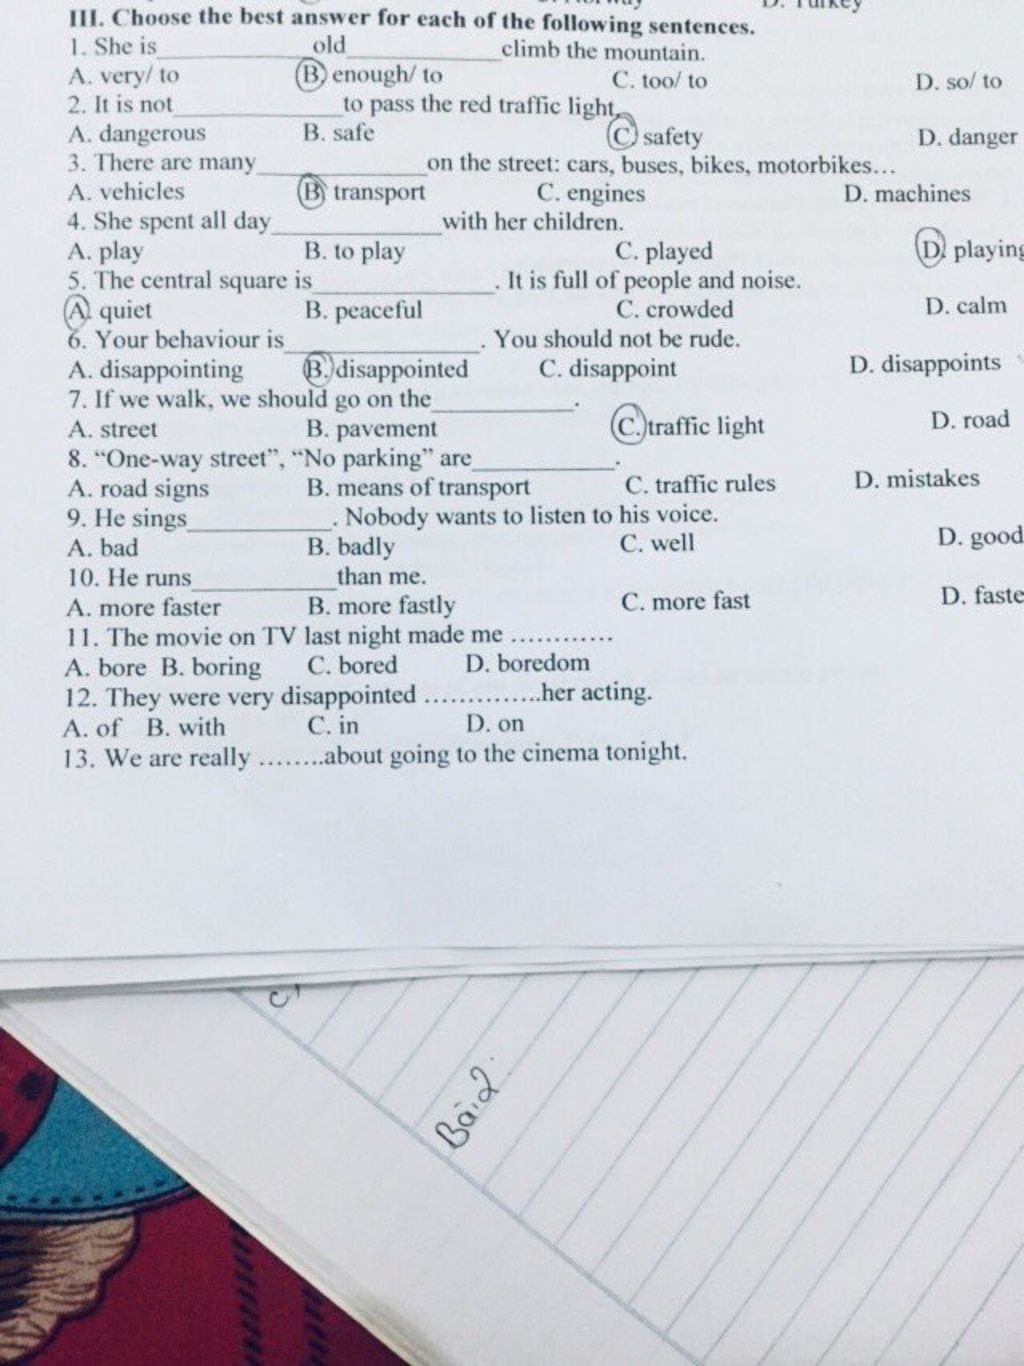 III. Choose the best answer for each of the following sentences.
1. She is____________old____________climb the mountain.
A. very/ to B. enough/ to C. too/ to D. so/ to
2. It is not____________to pass the red traffic light.
A. dangerous B. safe C. safety D. danger
3. There are many____________on the street: cars, buses, bikes, motorbikes…
A. vehicles B. transport C. engines D. machines
4. She spent all day____________with her children.
A. play B. to play C. played D. playing
5. The central square is____________. It is full of people and noise.
A. quiet B. peaceful C. crowded D. calm
6. Your behaviour is____________. You should not be rude.
A. disappointing B. disappointed C. disappoint D. disappoints
7. If we walk, we should go on the____________.
A. street B. pavement C. traffic light D. road
8. “One-way street”, “No parking” are____________.
A. road signs B. means of transport C. traffic rules D. mistakes
9. He sings____________. Nobody wants to listen to his voice.
A. bad B. badly C. well D. good
10. He runs____________than me.
A. more faster B. more fastly C. more fast D. faste
11. The movie on TV last night made me ………….
A. bore B. boring C. bored D. boredom
12. They were very disappointed …………..her acting.
A. of B. with C. in D. on
13. We are really ……..about going to the cinema tonight.
Bài 2